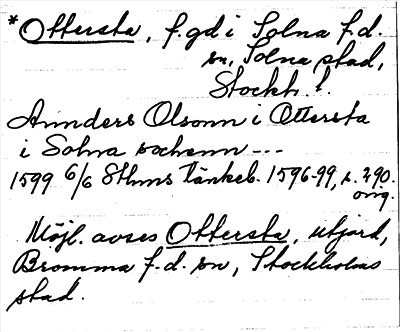 *Ottersta, f.gd i Solna f.d.
sn, Solna stad,
Stockh. l.
Annders Olsonn i Ottersta
i Solna sochenn ---
1599 6/6 Sthms tänkeb. 1596-99, s. 290.
orig.
Möjl. avses Ottersta, utjord,
Bromma f.d. sn, Stockholms
stad.